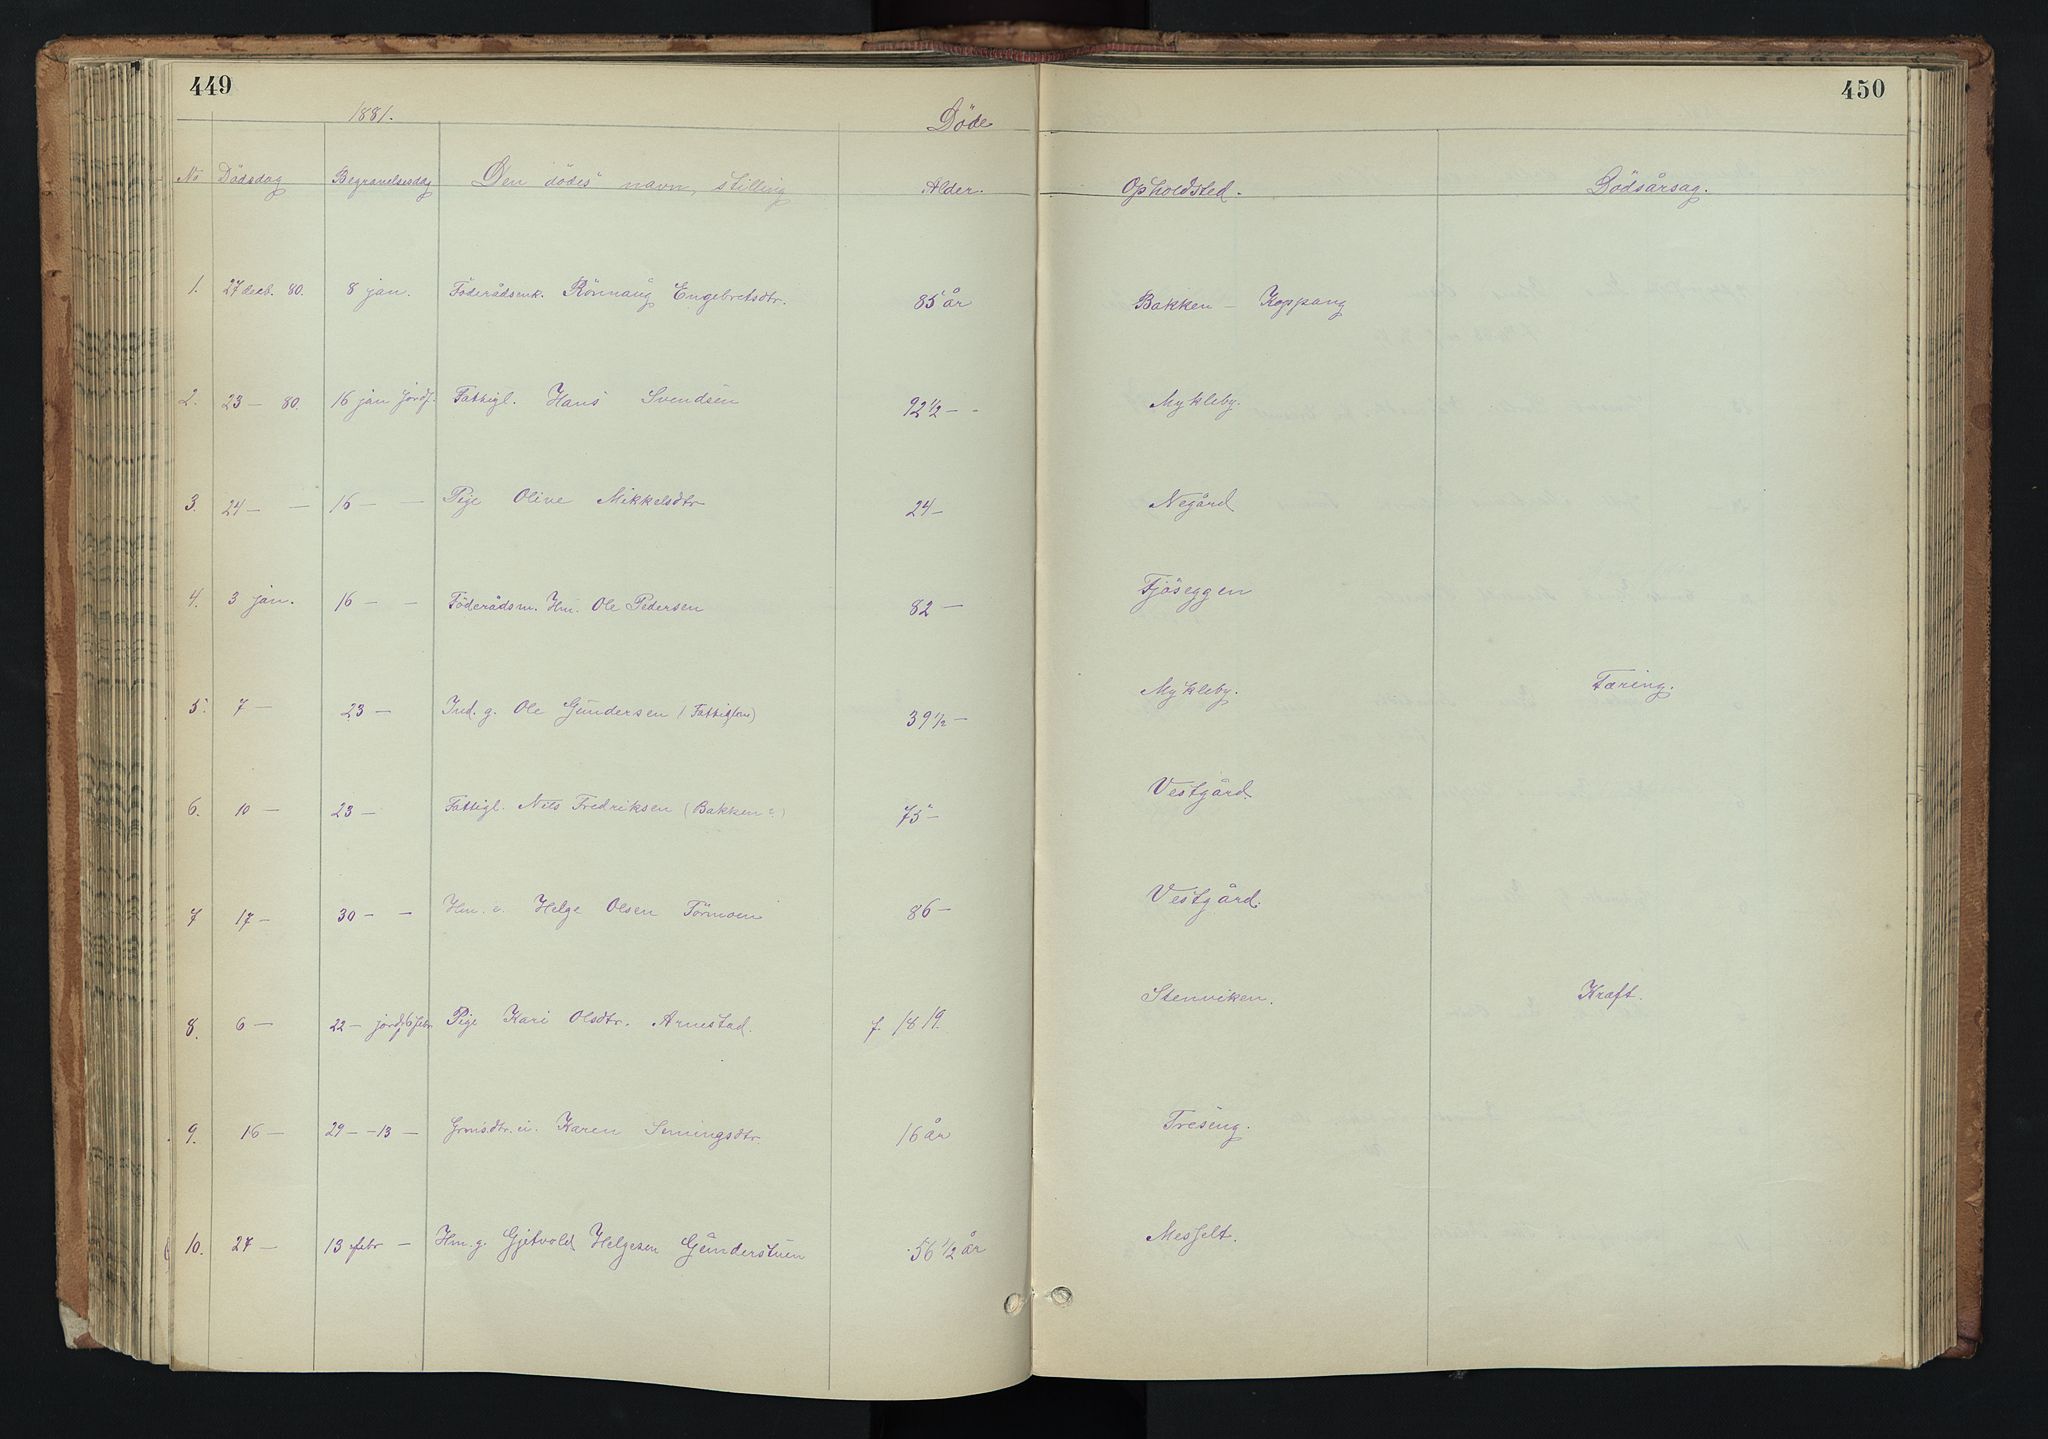 449
450
1881.
Döde
No Dödsdag Begravelsesdag Den dödes navn, stilling Alder. Opholdsted. Dödsårsag.
1. 27 decb. 80. 8 jan. Föderådsenk. Rönnaug Engebretsdtr. 85 år Bakken - Koppang
2. 23 — 80. 16 jan jordf. Fattigl. Hans Svendsen 92 1/2 - - Mykleby.
3. 24 — — 16 — — Pige Olive Mikkelsdtr 24 - Negård
4. 3 jan. 16 — — Föderådsm. Hm. Ole Pedersen 82 — Fjöseggen
5. 7 — 23 — Ind. g. Ole Gundersen (Fattiglem) 39 1/2 — Mykleby. Tæring.
6. 10 — 23 — Fattigl. Nils Fredriksen (Bakken) 75 — Vestgård.
7 17 — 30 — — Hm. e. Helge Olsen Törmoen 86 — Vestgård.
8. 6 — 22 — jordf. 6 febr. Pige Kari Olsdtr. Arnestad. f. 1819. Stenviken. Kræft.
9. 16 — 29 — -13 — Grmsdtr. Karen Semingsdtr. 16 år Treseng.
10. 27 — 13 febr — Hm. g. Gjetvold Helgesen Gunderstuen 56 1/2 år Messelt.